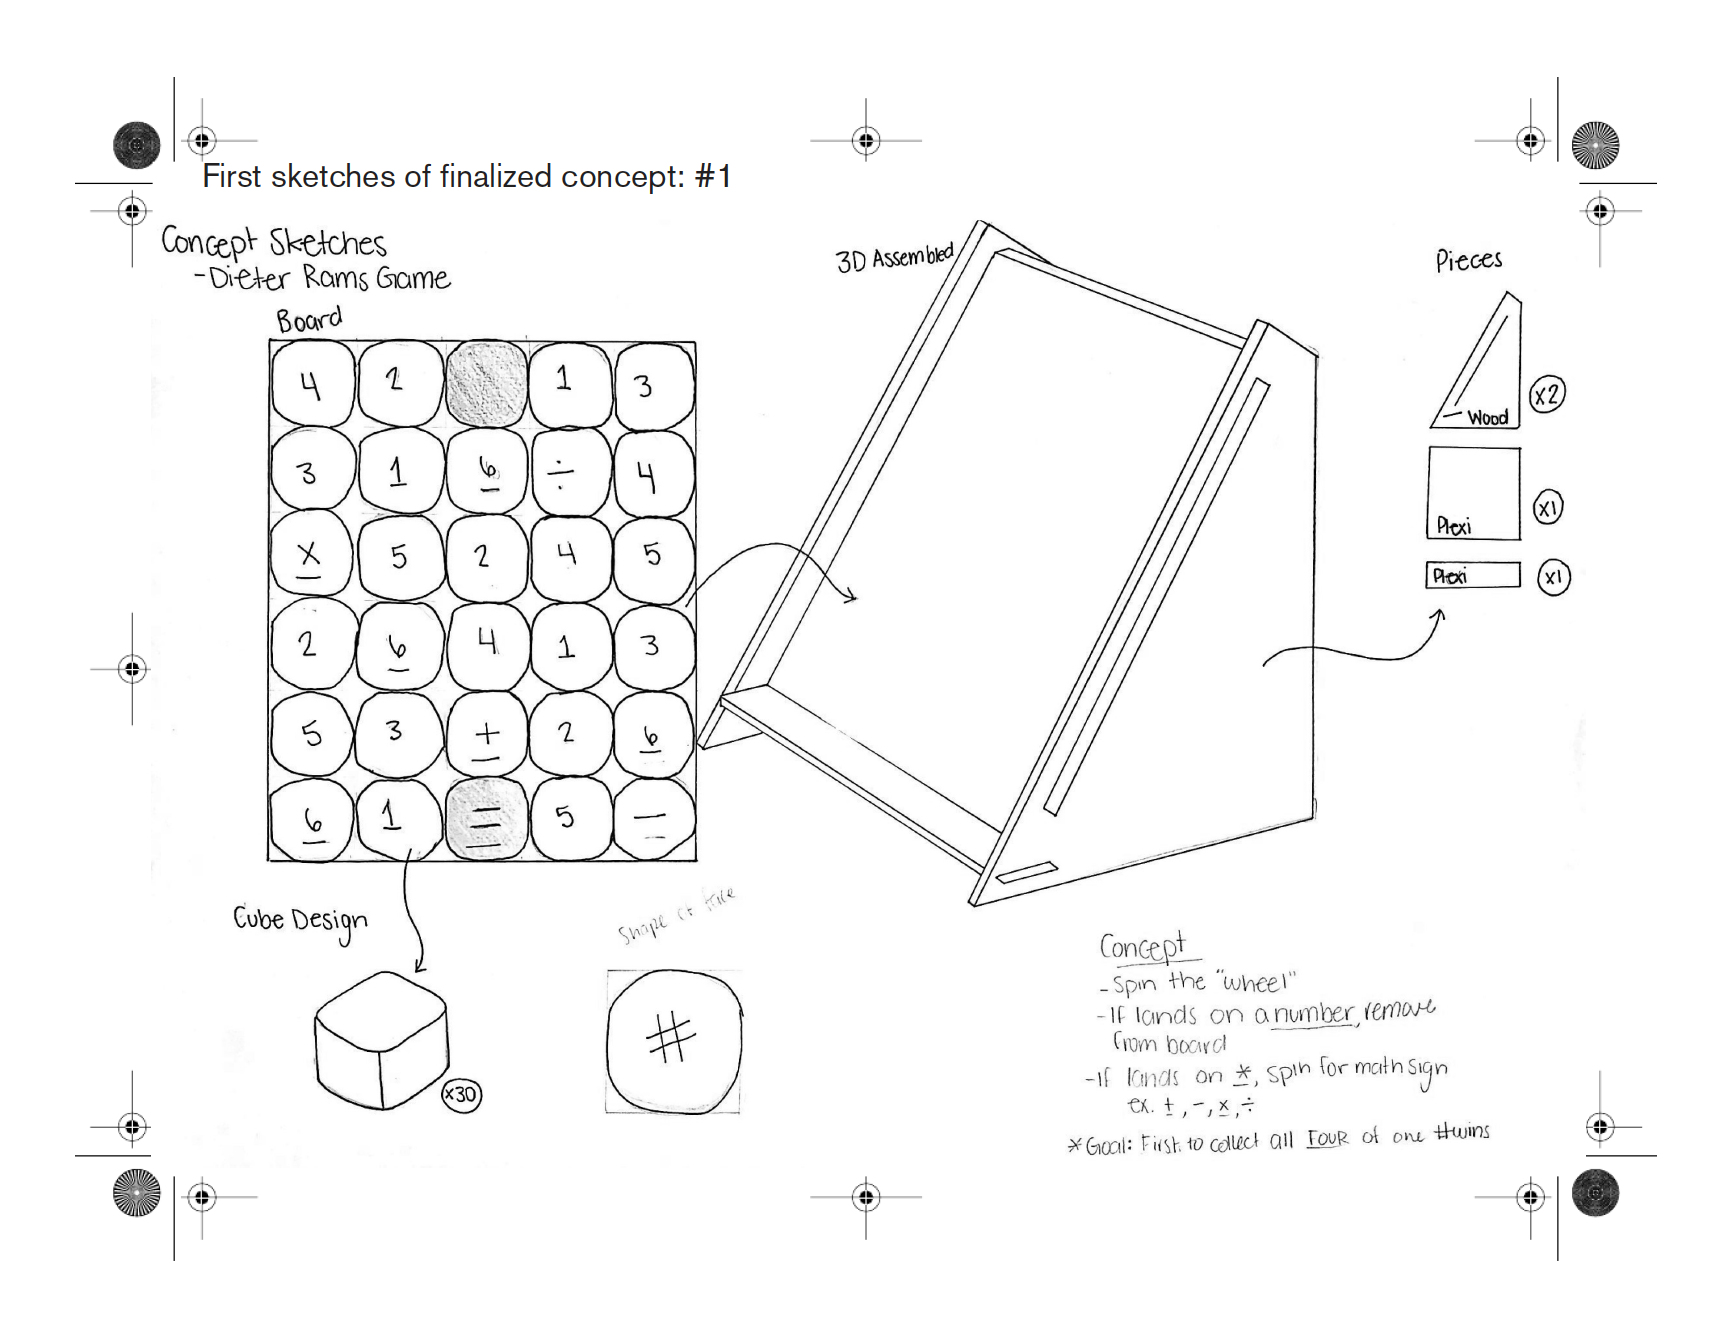 First sketches of finalized concept: #1
Concept Sketches
-Dieter Rams Game
Board
4 2 1 3
3 1 6 ÷ 4
x 5 2 4 5
2 6 4 1 3
5 3 + 2 6
6 1 = 5 −
Cube Design
x30
Shape of face
#
3D Assembled
Pieces
Wood
x2
Plexi
x1
Plexi
x1
Concept
- Spin the "wheel"
- If lands on a number, remove
from board
- If lands on *, spin for math sign
ex. +, -, x, ÷
* Goal: First to collect all FOUR of one # wins